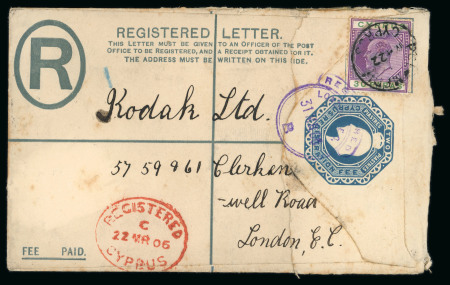 REGISTERED LETTER.
THIS LETTER MUST BE GIVEN TO AN OFFICER OF THE POST
OFFICE TO BE REGISTERED, AND A RECEIPT OBTAINED FOR IT.
THE ADDRESS MUST BE WRITTEN ON THIS SIDE.
R
Kodak Ltd.
57 59 & 61 Clerken
-well Road
London, E.C.
REGISTERED
C
22 MR 06
CYPRUS
FEE PAID.
FEE
TWO